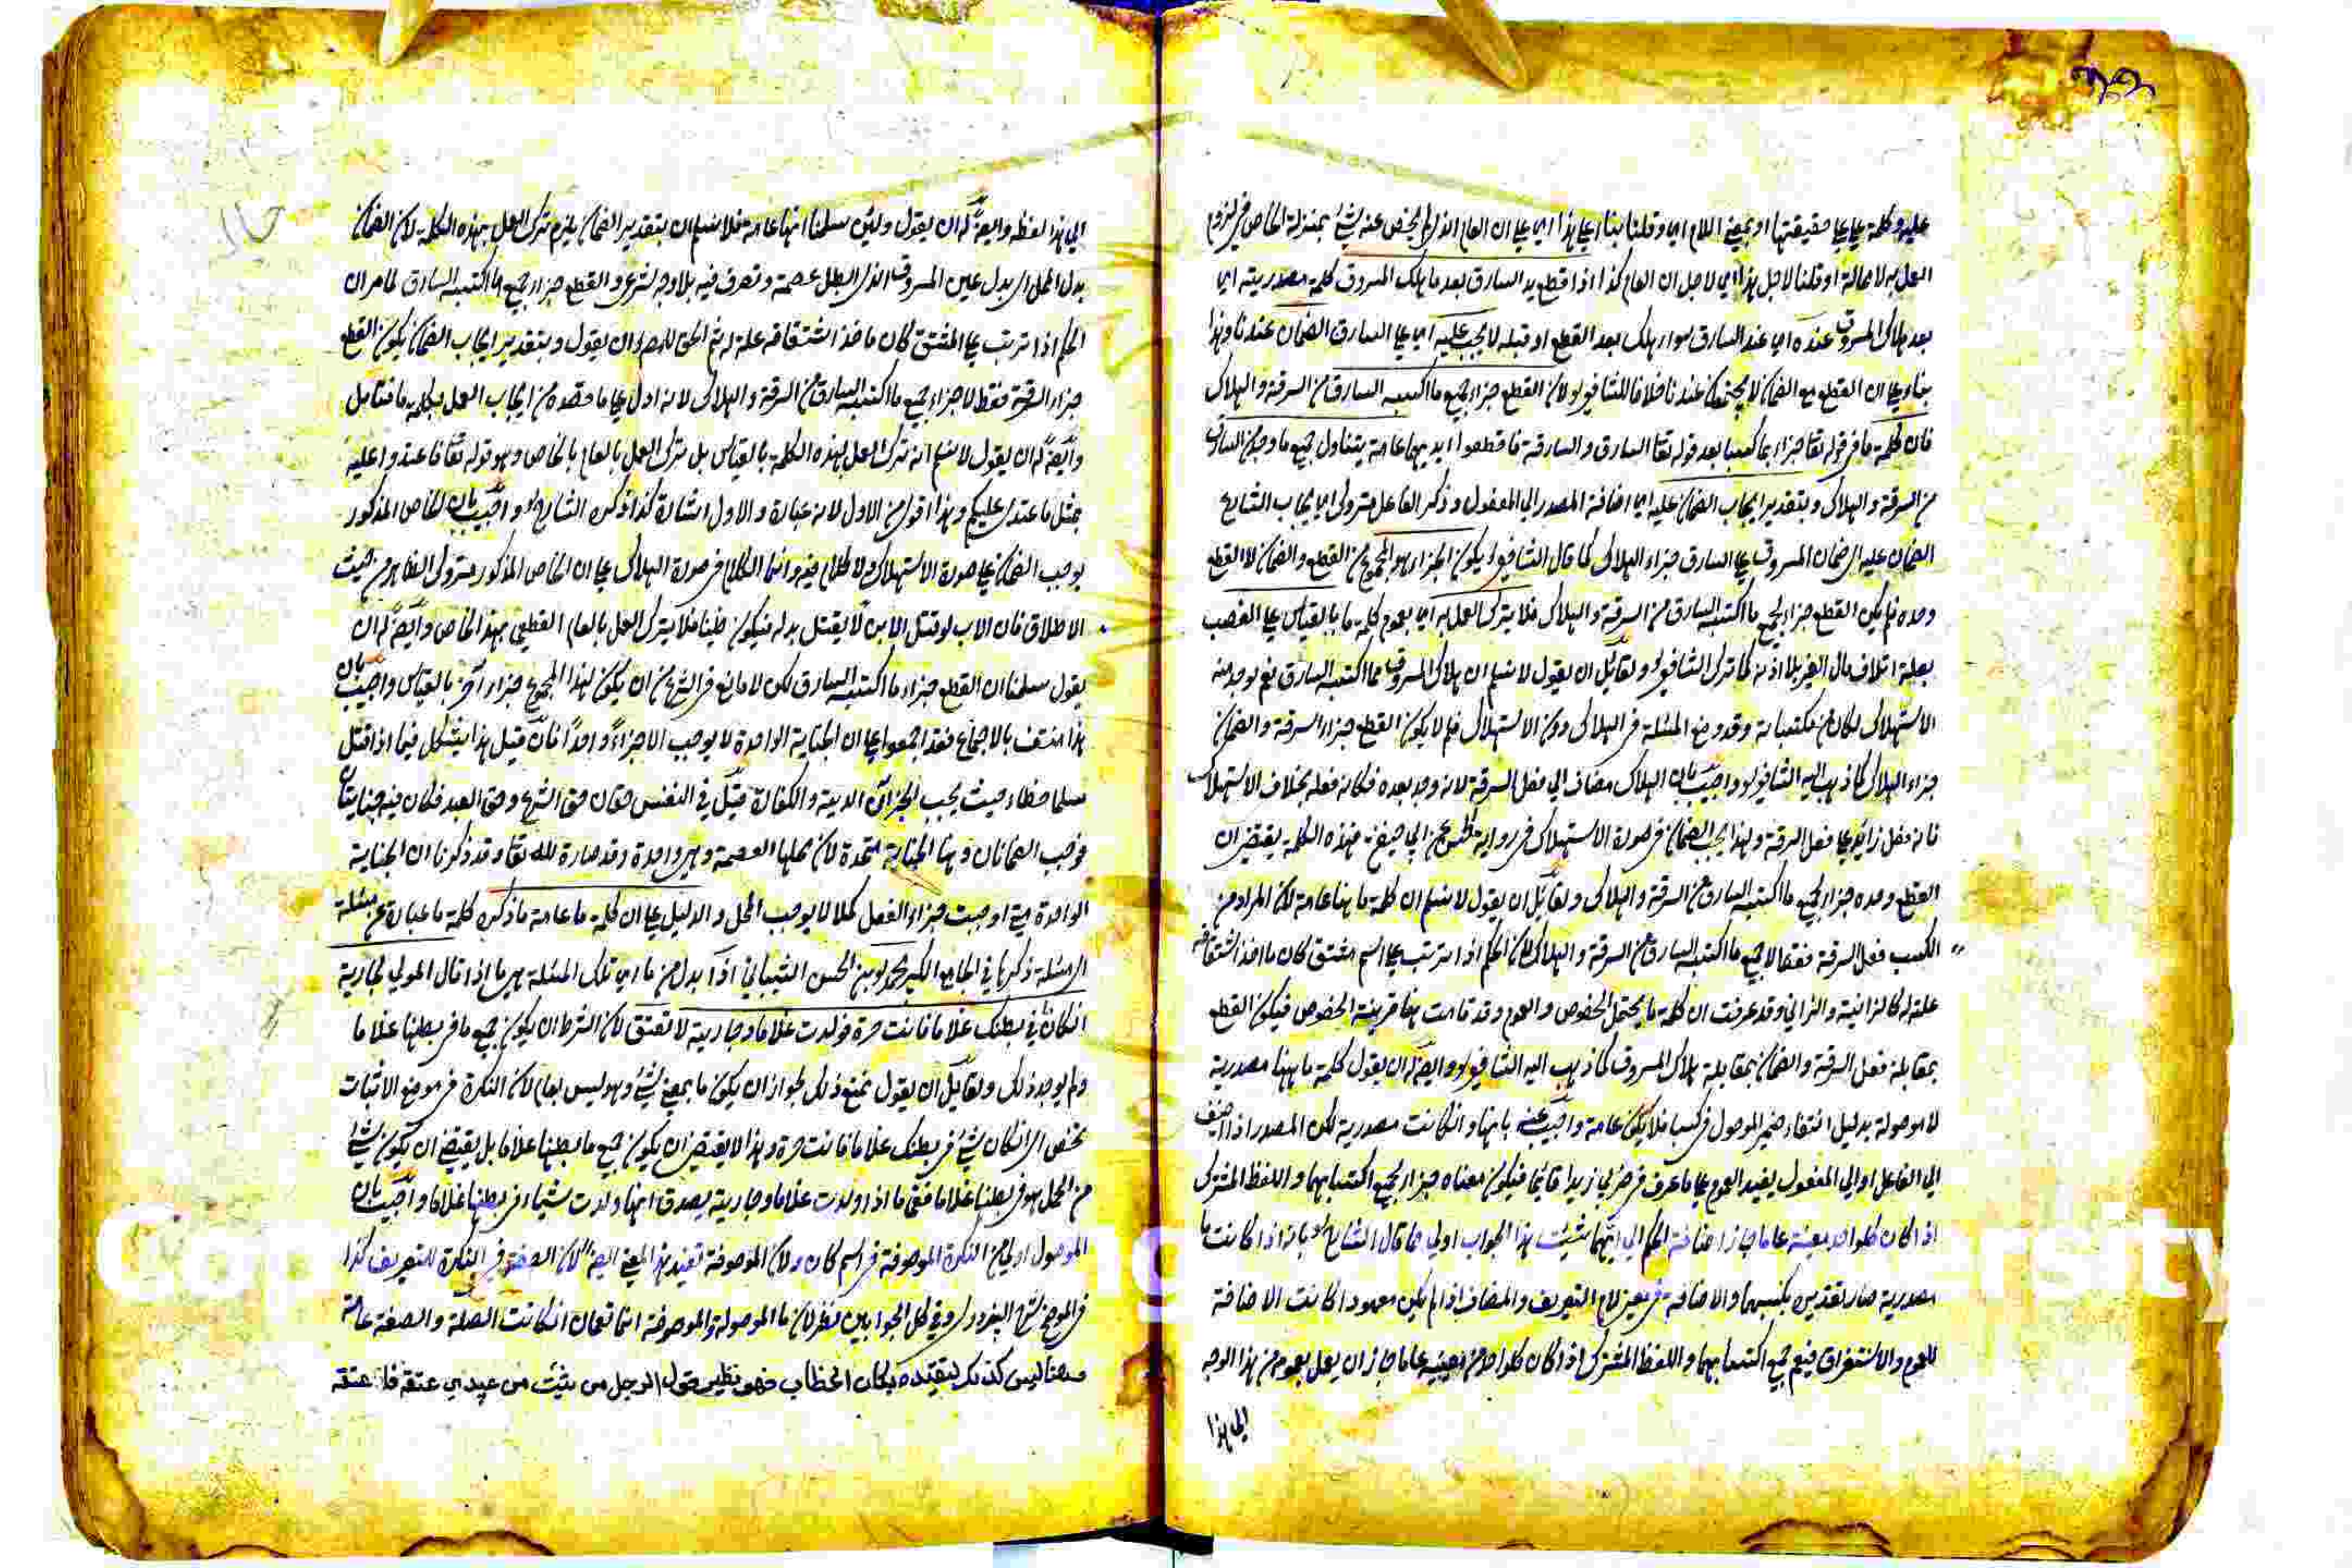 عليه وكلمة علي علي حقيقتها او بمعني اللام اي وقلنا بناء علي هذا اي علي ان العام الذي لم يخص عنه شئ بمنزلة الخاص في لزوم
العمل به لا محالة او قلنا لاجل هذا اي لاجل ان العام كذا اذا قطع يد السارق بعد ما هلك المسروق كلمة مصدرية اي
بعد هلاك المسروق عنده اي عند السارق سواء هلك بعد القطع او قبله لا يجب عليه اي علي السارق الضمان عندنا وهذا
بناء علي ان القطع مع الضمان لا يجتمعان عندنا خلافا للشافعي لان القطع جزاء جميع ما اكتسبه السارق من السرقة والهلاك
فان كلمة ما في قوله تعا جزاء بما كسبا بعد قوله تعا السارق والسارقة فاقطعوا ايديهما عامة يتناول جميع ما وجد من السارق
من السرقة والهلاك وبتقدير ايجاب الضمان عليه اي اضافة المصدر الي المفعول وذكر الفاعل متروك اي ايجاب الشارع
الضمان عليه اي ضمان المسروق علي السارق جزاء الهلاك كما قال الشافعي يكون الجزاء هو المجموع من القطع والضمان لا القطع
وحده فلم يكن القطع جزاء لجميع ما اكتسبه السارق من السرقة والهلاك فلا يترك العمل به اي بعموم كلمة ما بالقياس علي الغصب
بعلة اتلاف مال الغير بلا اذنه كما ترك الشافعي ولقائل ان يقول لا نسلم ان هلاك المسروق مما اكتسبه السارق نعم لو وجد منه
الاستهلاك لكان من مكتسباته وقد وضع المسئلة في الهلاك دون الاستهلاك فلم لا يكون القطع جزاء السرقة والضمان
جزاء الهلاك كما ذهب اليه الشافعي واجيب بان الهلاك مضاف الي فعل السرقة لانه وجد بعده فكانه فعله بخلاف الاستهلاك
فانه فعل زائد علي فعل السرقة ولهذا يجب الضمان في صورة الاستهلاك في رواية الحسن عن ابي حنيفة فهذه الكلمة يقتضي ان
القطع وحده جزاء لجميع ما اكتسبه السارق من السرقة والهلاك ولقائل ان يقول لا نسلم ان كلمة ما هنا عامة لان المراد من
الكسب فعل السرقة فقط لا جميع ما اكتسبه السارق من السرقة والهلاك لان الحكم اذا ترتب علي اسم مشتق كان ماخذ اشتقاقه
علة له كالزانية والزاني وقد عرفت ان كلمة ما يحتمل الخصوص والعموم وقد قامت هنا قرينة الخصوص فيكون القطع
بمقابلة فعل السرقة والضمان بمقابلة هلاك المسروق كما ذهب اليه الشافعي وايضا له ان يقول كلمة ما ههنا مصدرية
لا موصولة بدليل انتفاء ضمير الموصول في كسبا فلا يكون عامة واجيب عنه بانها وان كانت مصدرية لكن المصدر اذا اضيف
الي الفاعل او الي المفعول يفيد العموم علي ما عرف في ضربي زيدا قائما فيكون معناه جزاء لجميع اكتسابهما واللفظ المشترك
اذا كان كل واحد من معنيه عاما جاز اضافة الحكم الي ايهما شئت هذا الجواب اولي مما قال الشارح بانه اذا كانت ما
مصدرية صار تقديره بكسبهما والاضافة في معني لام التعريف والمضاف اذا لم يكن معهودا كانت الاضافة
للعموم والاستغراق فيعم جميع اكتسابهما واللفظ المشترك اذا كان كل واحد من معنييه عاما جاز ان يعمل بعموم من هذا الوجه
الي هذا
الي هذا لفظه وايضا له ان يقول ولئن سلمنا انها عامة فلا نسلم ان بتقدير الضمان يلزم ترك العمل بهذه الكلمة لان الضمان
بدل المحل اي بدل عين المسروق الذي ابطل عصمته وتصرف فيه بلا وجه شرعي والقطع جزاء جميع ما اكتسبه السارق لما مر ان
الحكم اذا ترتب علي المشتق كان ماخذ اشتقاقه علة له ثم الحق للخصم ان يقول وبتقدير ايجاب الضمان يكون القطع
جزاء السرقة فقط لا جزاء جميع ما اكتسبه السارق من السرقة والهلاك لانه ادل علي ما قصده من ايجاب العمل بكلمة ما فتامل
وايضا له ان يقول لا نسلم انه ترك العمل بهذه الكلمة بالقياس بل ترك العمل بالعام بالخاص وهو قوله تعا فاعتدوا عليه
بمثل ما اعتدي عليكم وهذا اقوي من الاول لانه عبارة والاول اشارة كذا ذكره الشارح واجيب بان الخاص المذكور
يوجب الضمان علي صورة الاستهلاك ولا كلام فيه وانما الكلام في صورة الهلاك علي ان الخاص المذكور متروك الظاهر من حيث
الاطلاق فان الاب لو قتل الابن لا يقتل بدله فيكون ظنيا فلا يترك العمل بالعام القطعي بهذا الخاص وايضا له ان
يقول سلمنا ان القطع جزاء ما اكتسبه السارق لكن لا مانع في الشرع من ان يكون لهذا المجموع جزاء آخر بالقياس واجيب بان
هذا منتف بالاجماع فقد اجمعوا علي ان الجناية الواحدة لا يوجب الا جزاءً واحداً فان قيل هذا يشكل فيما اذا قتل
مسلما خطاء حيث يجب الجزاآن الدية والكفارة قيل في النفس حقان حق الشرع وحق العبد فكان فيه جنايتان
فوجب الضمانان وهنا الجناية متحدة لان محلها العصمة وهي واحدة وقد صارة لله تعا وقد ذكرنا ان الجناية
الواحدة متي اوجبت جزاء الفعل كملا لا يوجب المحل والدليل علي ان كلمة ما عامة ما ذكره كلمة ما عبارة عن مسئلة
اي مسئلة ذكرها في الجامع الكبير محمد بن الحسن الشيباني اذا بدل من ما اي تلك المسئلة هي ما اذا قال المولي لجارية
ان كان في بطنك غلاما فانت حرة فولدت غلاما وجارية لا تعتق لان الشرط ان يكون جميع ما في بطنها غلاما
ولم يوجد ذلك ولقائل ان يقول نمنع ذلك لجواز ان يكون ما بمعني شئ وهو ليس بعام لان النكرة في موضع الاثبات
يخص اي ان كان شئ في بطنك غلاما فانت حرة وهذا لا يقتضي ان يكون جميع ما بطنها غلاما بل يقتضي ان يكون شئ
من الحمل هو في بطنها غلاما فعلي ما اذا ولدت غلاما وجارية يصدق انها ولدت شيئا في بطنها غلاما واجيب بان
الموصول اولي من النكرة الموصوفة في اسم كان ولان الموصوفة تفيد هذا المعني ايضا لان الصفة في النكرة للتعريف كذا
في الموضح شرح البزدوي وفي كل الجوابين نظر لان ما الموصولة والموصوفة انما تعمان ان كانت الصلة والصفة عامة
وههنا ليس كذلك لتقيده بكاف الخطاب فهو نظير قول الرجل من شئت من عبيدي عتقه فاعتقه